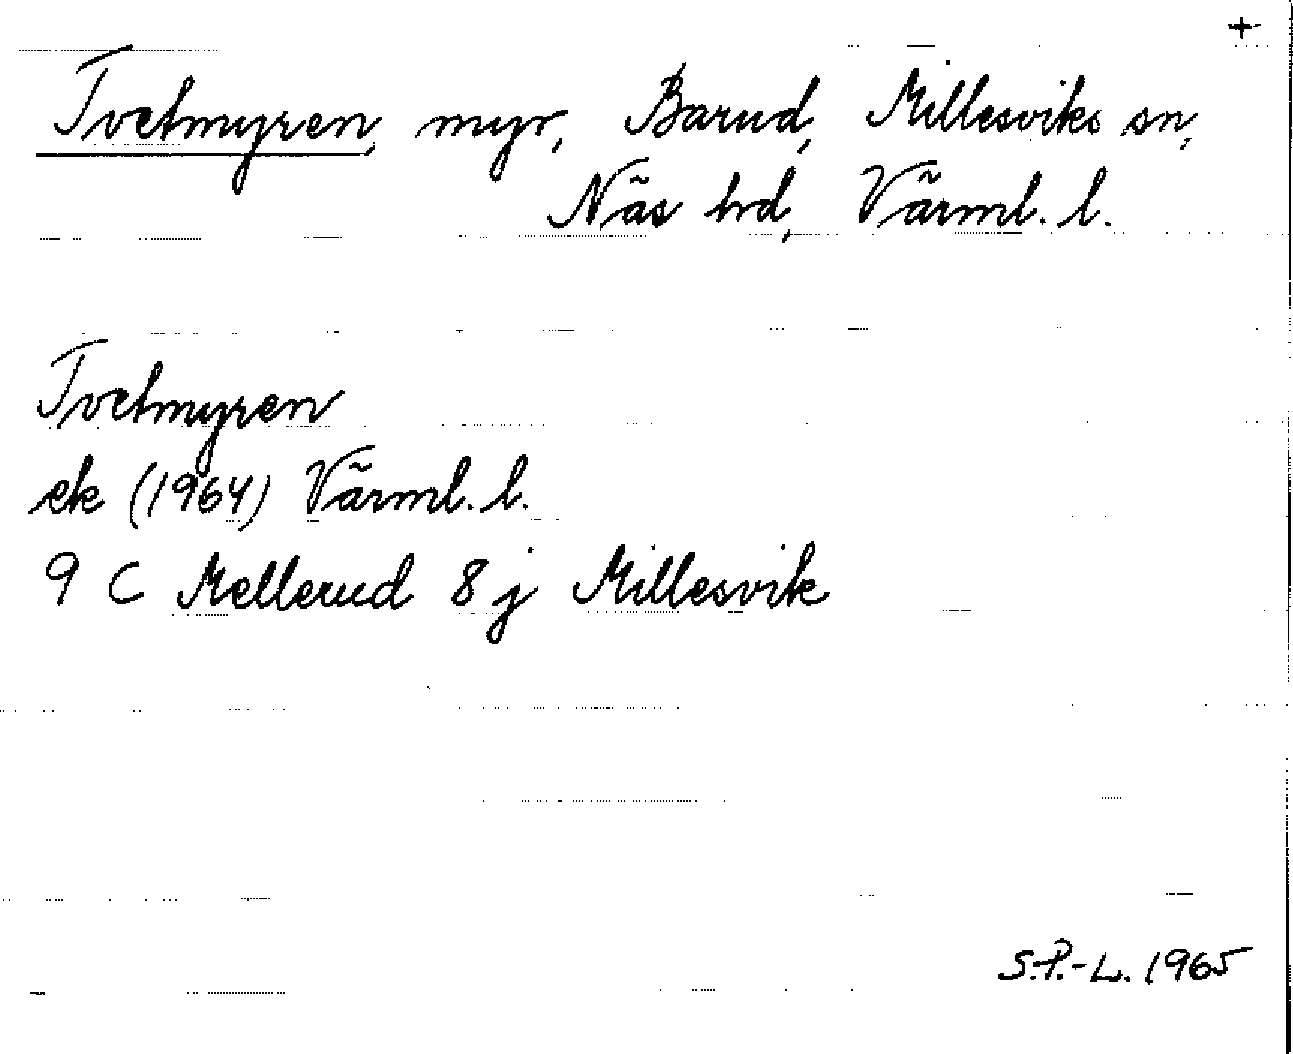 +
Tvetmyren, myr, Barud, Millesviks sn,
Näs hd, Värml. l.
Tvetmyren
ek (1964) Värml. l.
9 C Mellerud 8 j Millesvik
S.P.-L. 1965